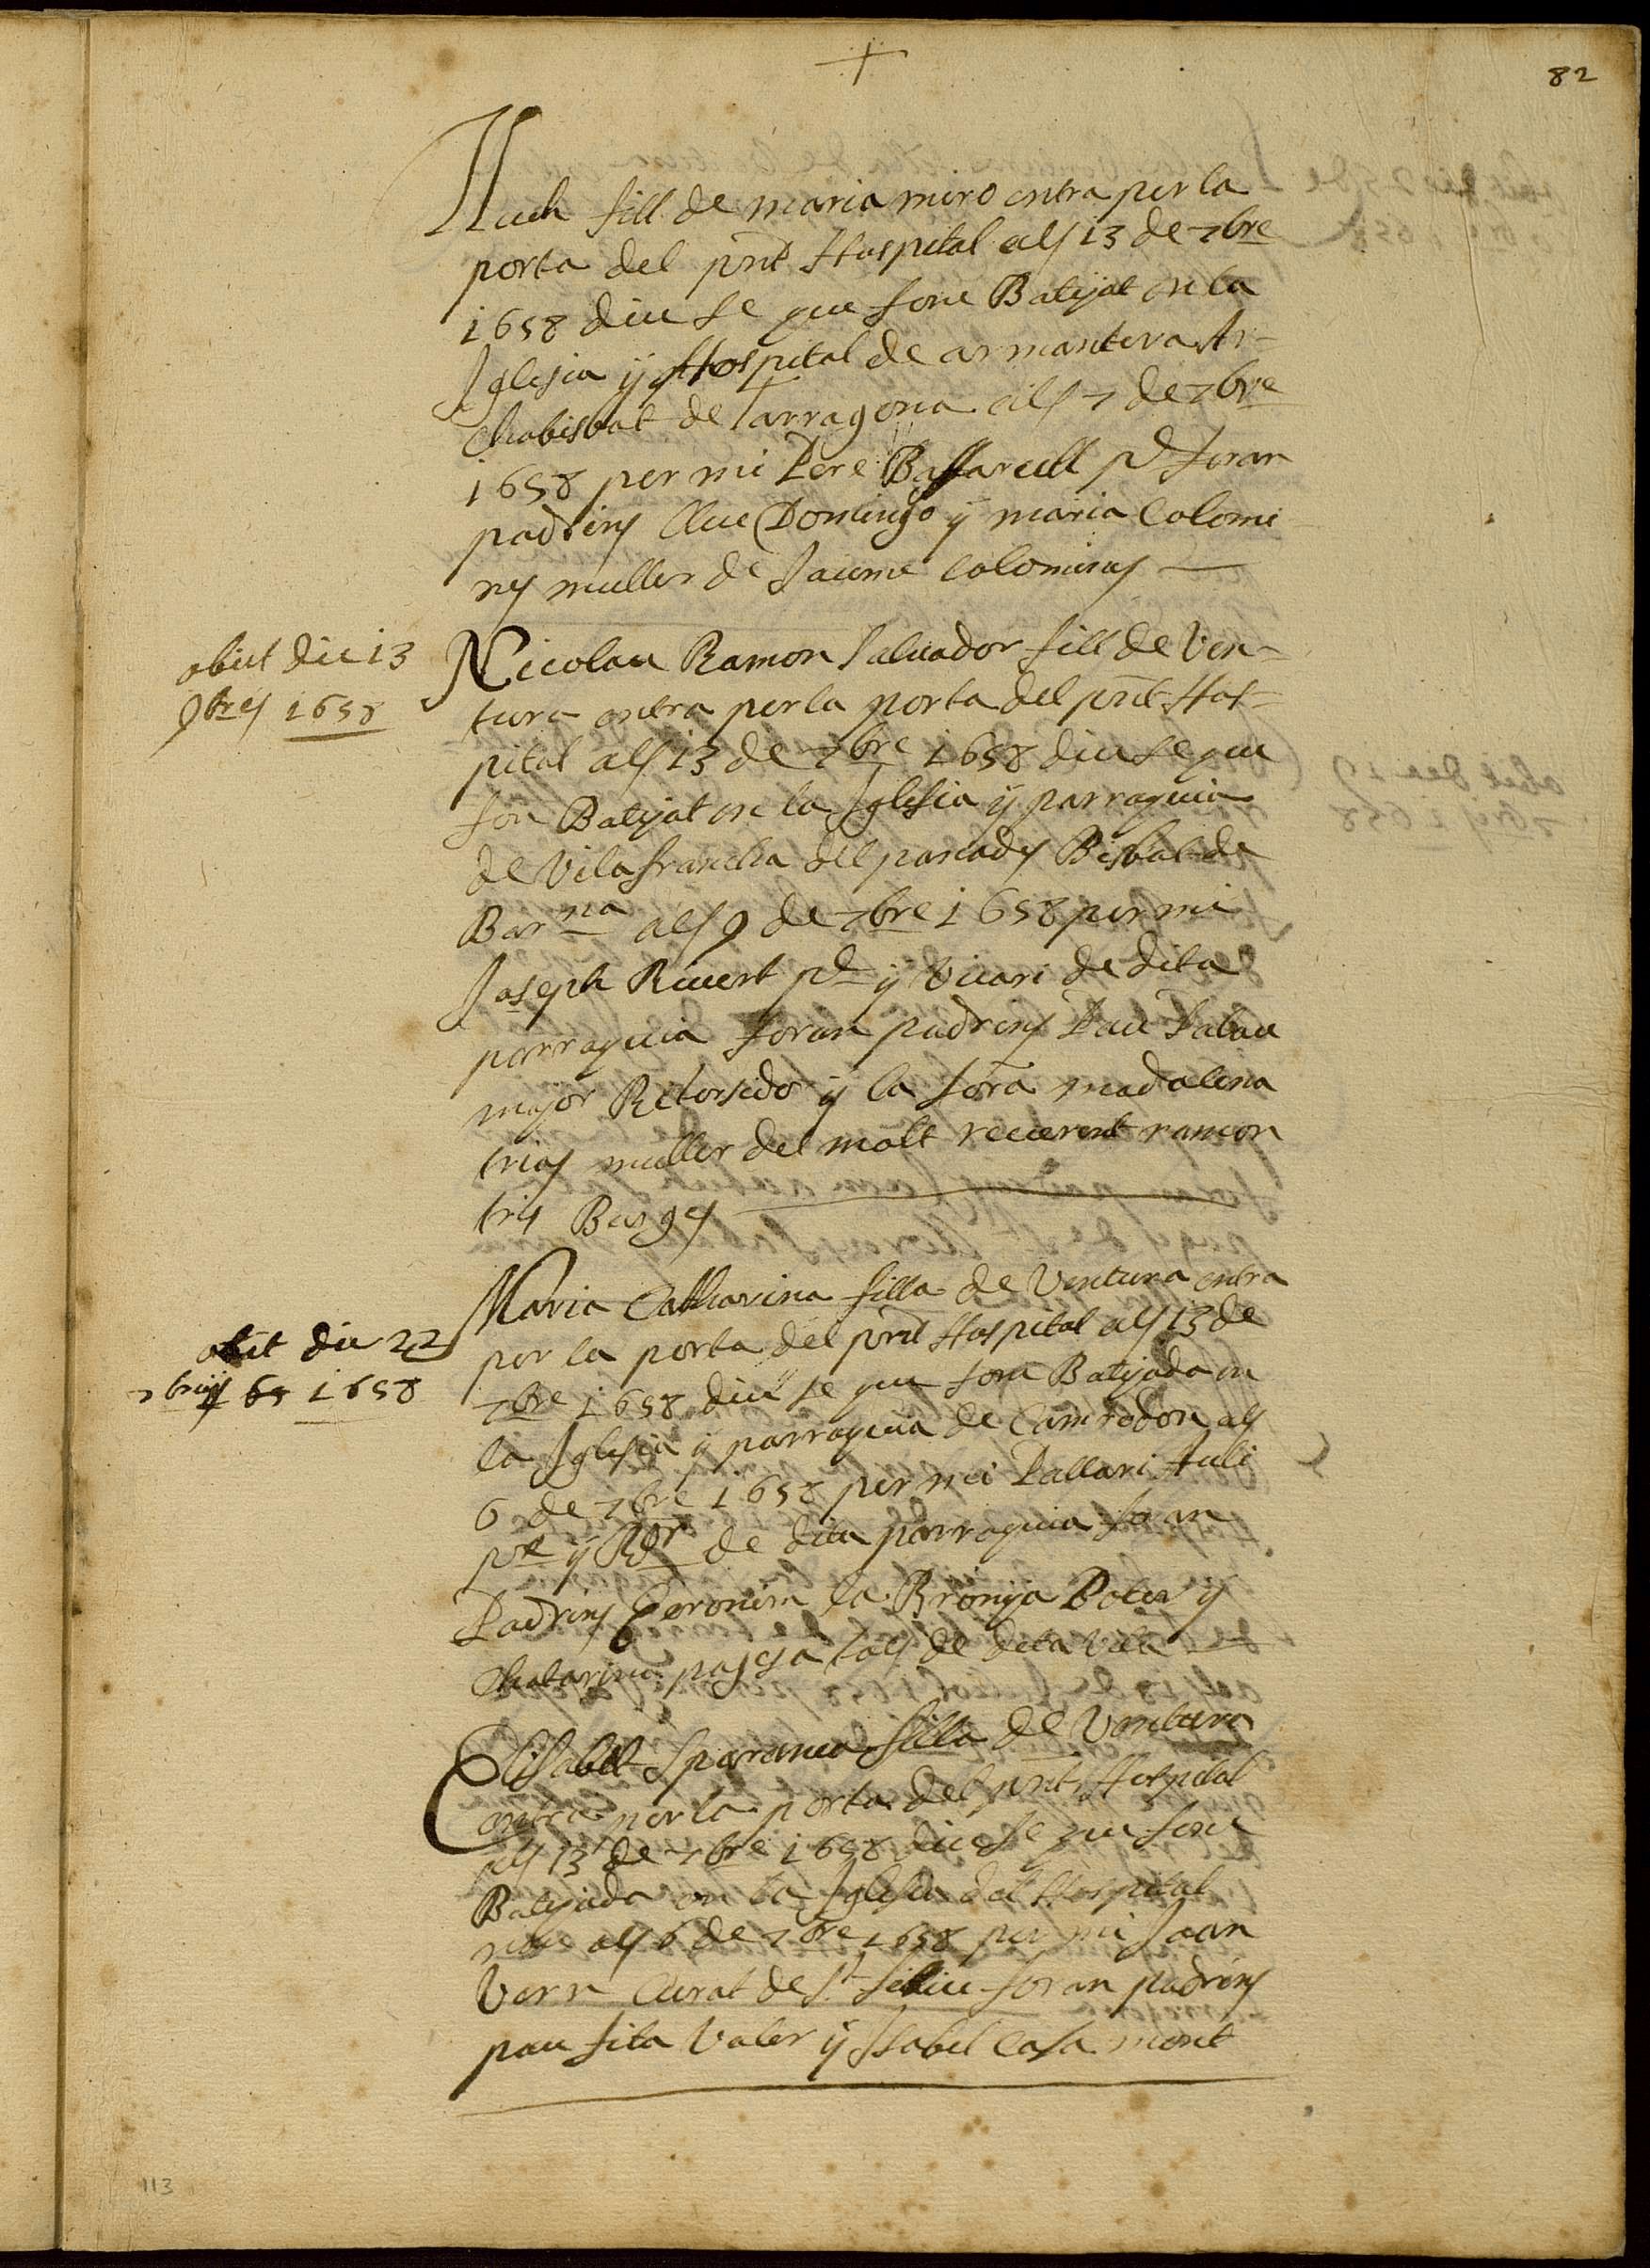 82
Lluch fill de maria miro entra per la
porta del pnt Hospital als 13 de 7bre
1658 diu se que fou Batejat en la
Iglesia ÿ Hospital de armantera Ar-
chabisbat de Tarragona als 7 de 7bre
1658 per mi Pere Baffarull pe foran
padrins Domingo ÿ maria Colomi
nes muller de Jaume Colomines
obiit die 13
9bres 1658
Nicolau Ramon Saluador fill de Ven-
tura entra per la porta del pnt Hos-
pital als 13 de 7bre 1658 diu se que
fou Batejat en la Iglesia ÿ parraquia
de Vilafrancha del panades Bisbat de
Barna als 9 de 7bre 1658 per mi
Joseph Riuert pe ÿ Vicari de dita
parraquia foran padrins Pau Palau
major Retorsedor ÿ la sora madalena
trias muller del molt reuerent ramon
tries Burges
obiit die 22
7bris 65 1658
Maria Catharina filla de Ventura entra
per la porta del pnt Hospital als 13 de
7bre 1658 diu se que fou Batejada en
la Iglesia ÿ parraquia de Camrodon als
6 de 7bre 1658 per mi Pallari Huli
pre ÿ Rdr de dita parraquia foran
Padrins Geronim la Bronija Poter ÿ
Chatarina pagesa tots de dita Vila
Elisabet Sperança filla de Ventura
entra per la porta del pnt Hospital
als 13 de 7bre 1658 diu se que fou
Batejada en la Iglesia del Hospital
nou als 6 de 7bre 1658 per mi Joan
Vern Curat de St feliu foran padrins
pau fita Valer ÿ Isabel Casa mont
113